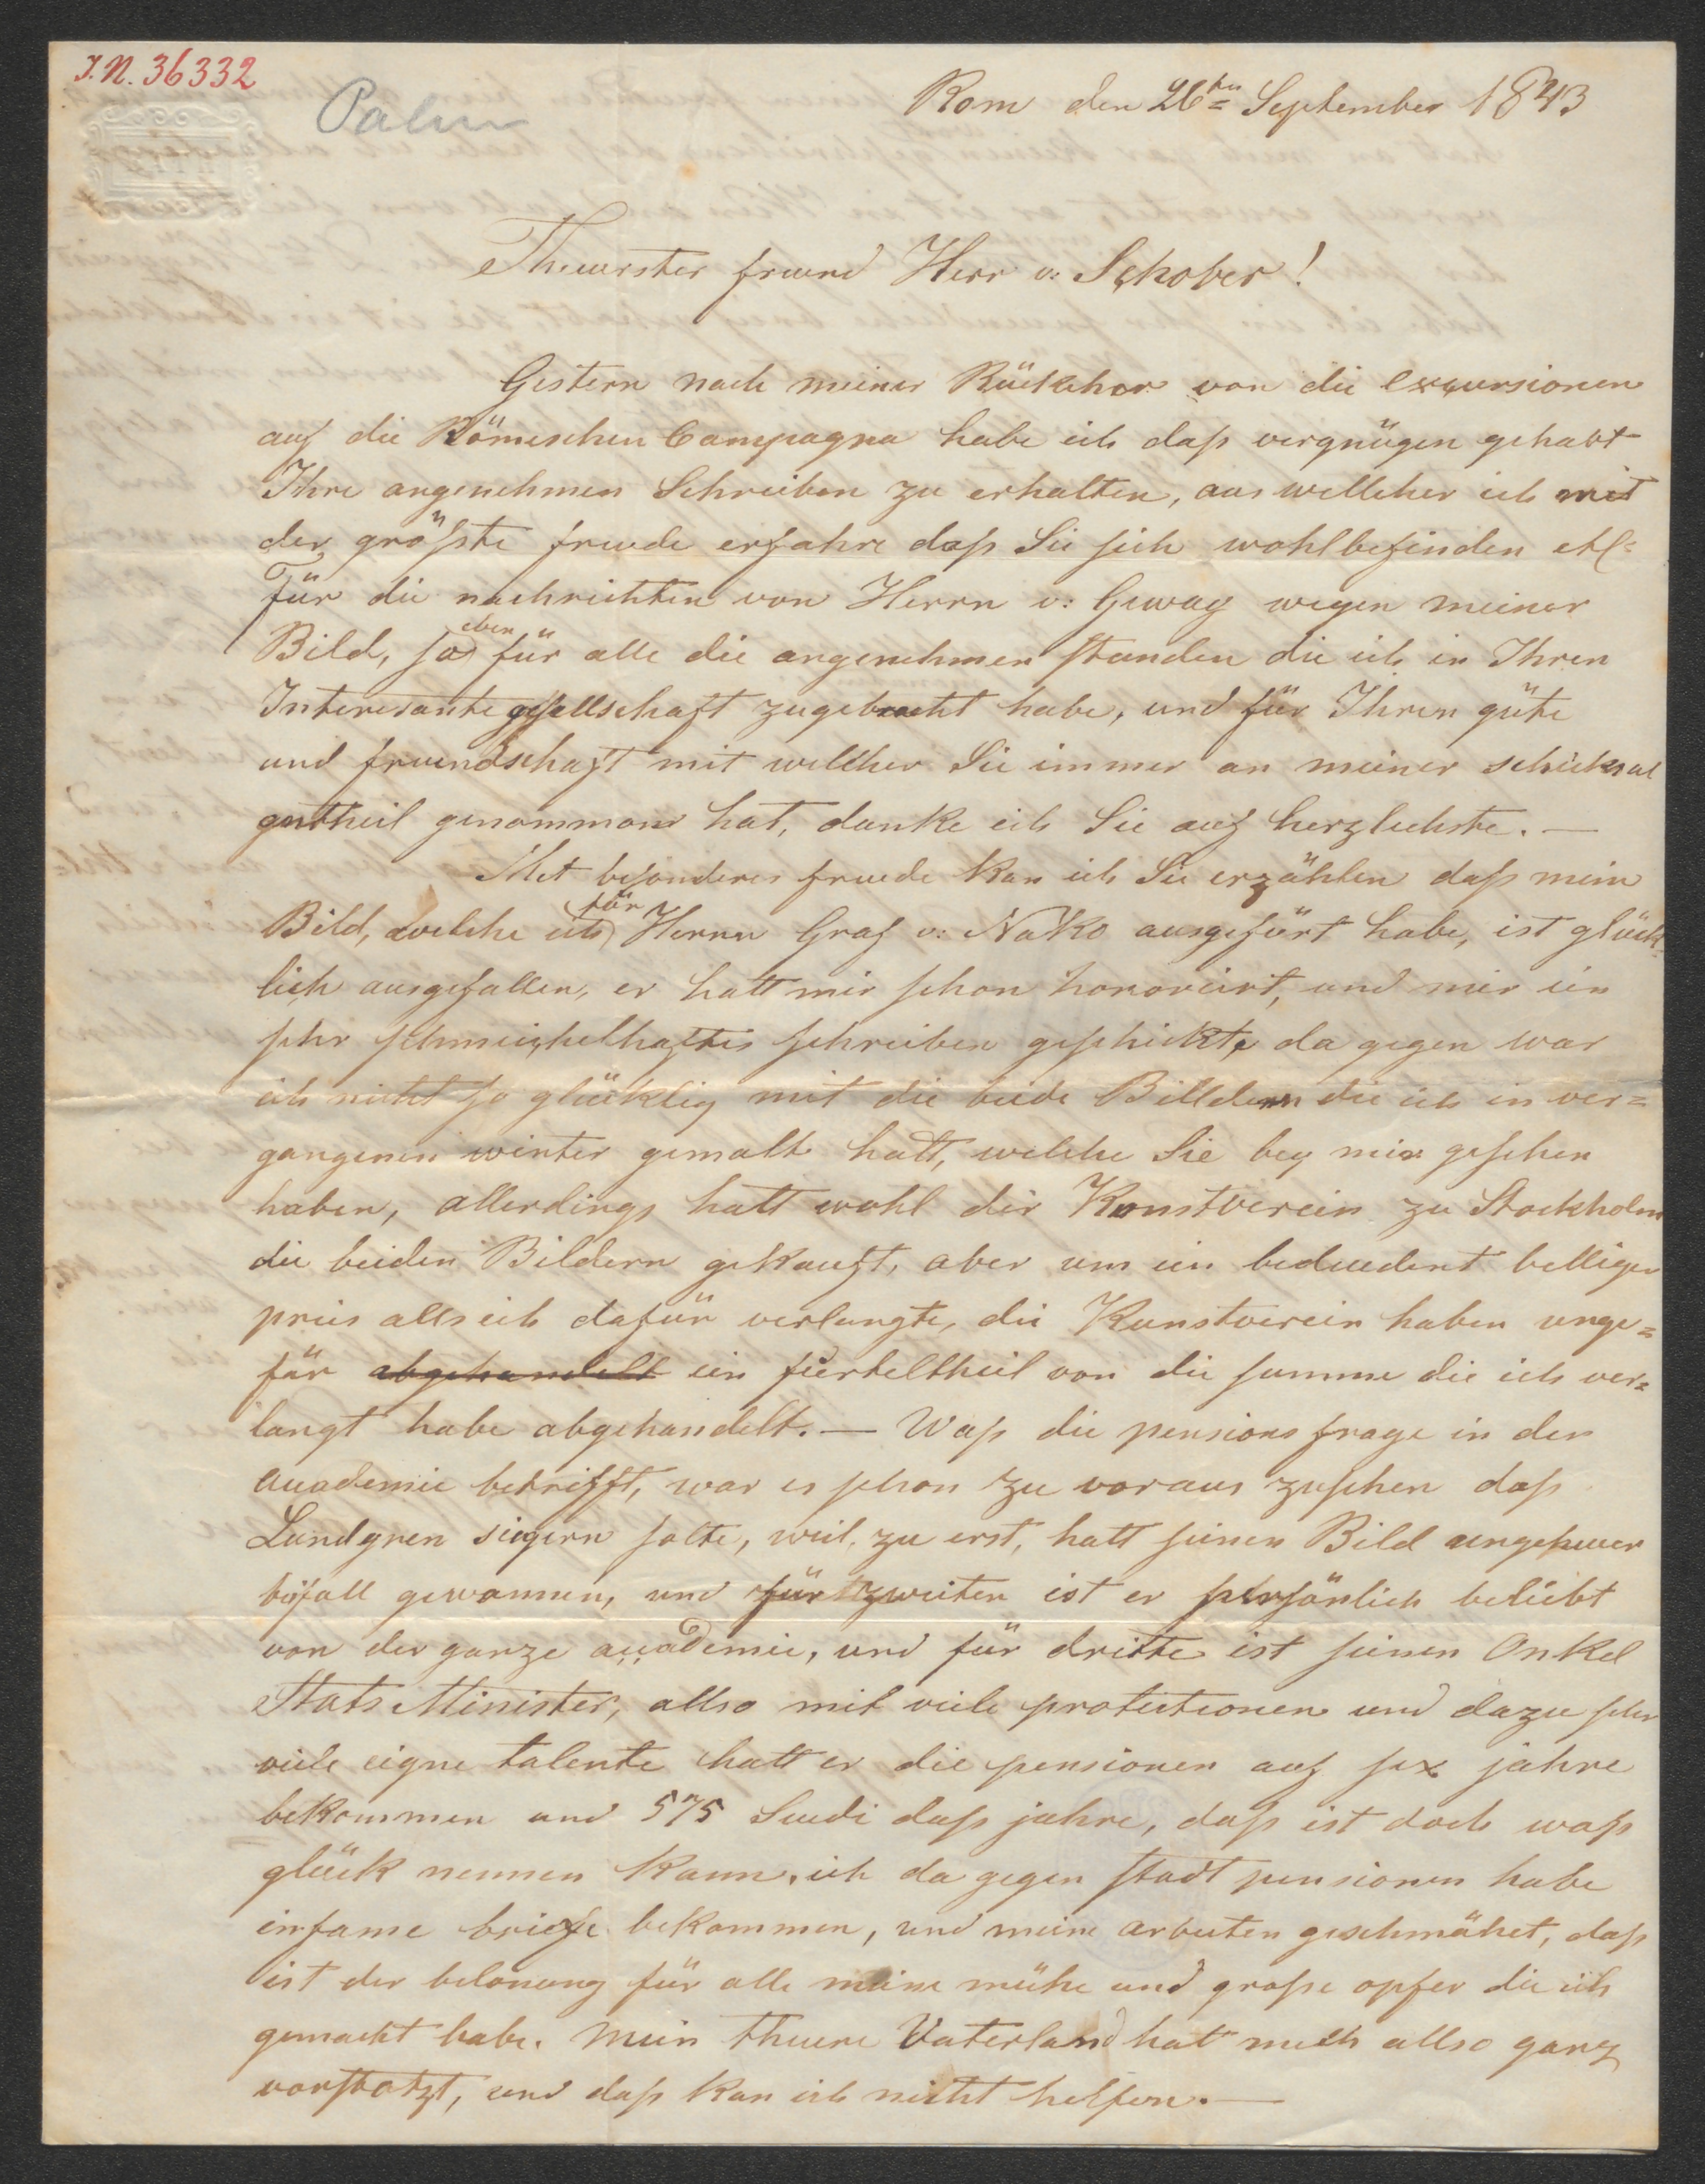 J.N. 36332
Palm
Rom den 26ten September 1843
Theurster freund Herr v: Schober!
Gestern nach meiner Rückehor von die excursionen
auf die Römischen Campagna habe ich daß vergnügen gehabt
Ihre angenehmen Schreiben zu erhalten, aus wellcher ich mit
der größte freude erfahre daß Sie sich wohlbefinden etc=
Für die nachrichten von Herrn v: Geway wegen meiner
Bild, so eben für alle die angenehmen stunden die ich in Ihren
Interesante gesellschaft zugebracht habe, und für Ihren güte
und freundschaft mit wellcher Sie immer an meiner schicksal
antheil genommon hat, danke ich Sie auf herzlichste. —
Met besonderes freude kan ich Sie erzählen daß mein
Bild, welche ich für Herrn Graf v: Nako ausgefürt habe, ist glück
lich ausgefallen, er hatt mir schon honorirt, und mir ein
sehr schmeichelhaftes schreiben geschickt, da gegen war
ich nicht so glücklig mit die beide Billdern die ich in ver=
gangenen winter gemalt hatt, welche Sie bey mir gesehen
haben, allerdings hatt wohl der Konstverein zu Stockholm
die beiden Bildern gekauft, aber um ein bedeudent belliger
preis alls ich dafür verlangte, die Kunstverein haben unge=
fär abgehandelt ein fierteltheil von die summe die ich ver=
langt habe abgehandelt. — Waß die pensions frage in der
academie betrifft, war es schon zu voraus zusehen daß
Lundgren siegern solte, weil, zu erst, hatt seinen Bild ungeheuer
beifall gewonnen, und für zweiten ist er persönlich beliebt
von der ganze academie, und für dritte ist seinen Onkel
Stats Minister, allso mit viele protectionen und dazu sehr
viele eigne talente hatt er die pensionen auf sex jahre
bekommen und 575 Scudi daß jahre, daß ist doch waß
glück nennen kann, ich da gegen stadt pensionen habe
infame briefe bekommen, und meine arbeiten geschmähet, daß
ist der belonung für alle meine mühe und große opfer die ich
gemacht habe. Mein theure Vaterland hat mich allso ganz
vorstotzt, und daß kan ich nicht helfen. —